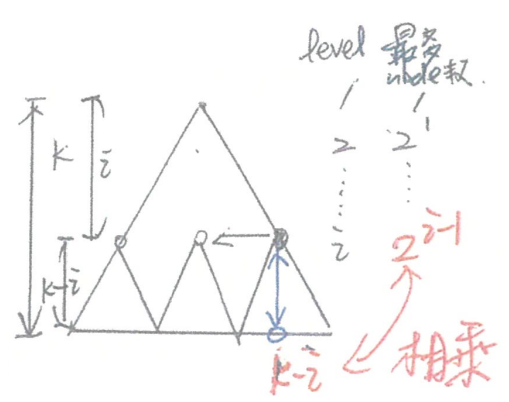 level 最多
node數
2 2¹
i 2^{i-1}
k i
k-i
k-i 相乘